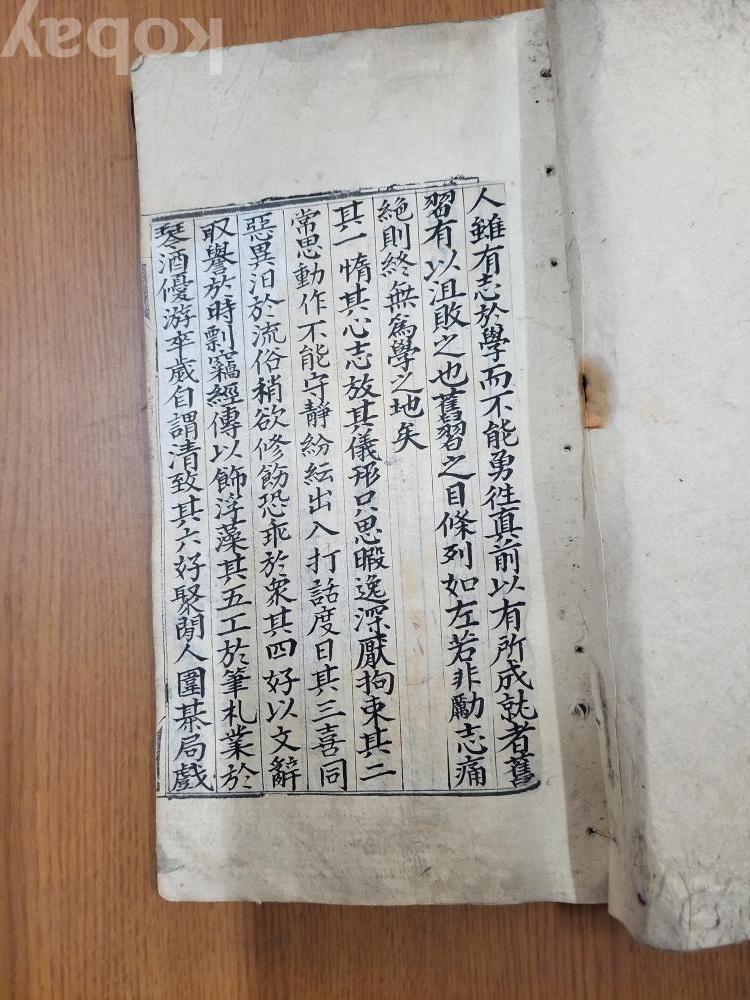 kobay
人雖有志於學而不能勇徃直前以有所成就者舊
習有以沮敗之也舊習之目條列如左若非勵志痛
絶則終無爲學之地矣
其一惰其心志放其儀形只思暇逸深厭拘束其二
常思動作不能守静紛紜出入打話度日其三喜同
惡異汨於流俗稍欲修飭恐乖於衆其四好以文辭
取譽於時剽竊經傳以飾浮藻其五工於筆札業於
琴酒優游卒歲自謂清致其六好聚閒人圍棊局戱